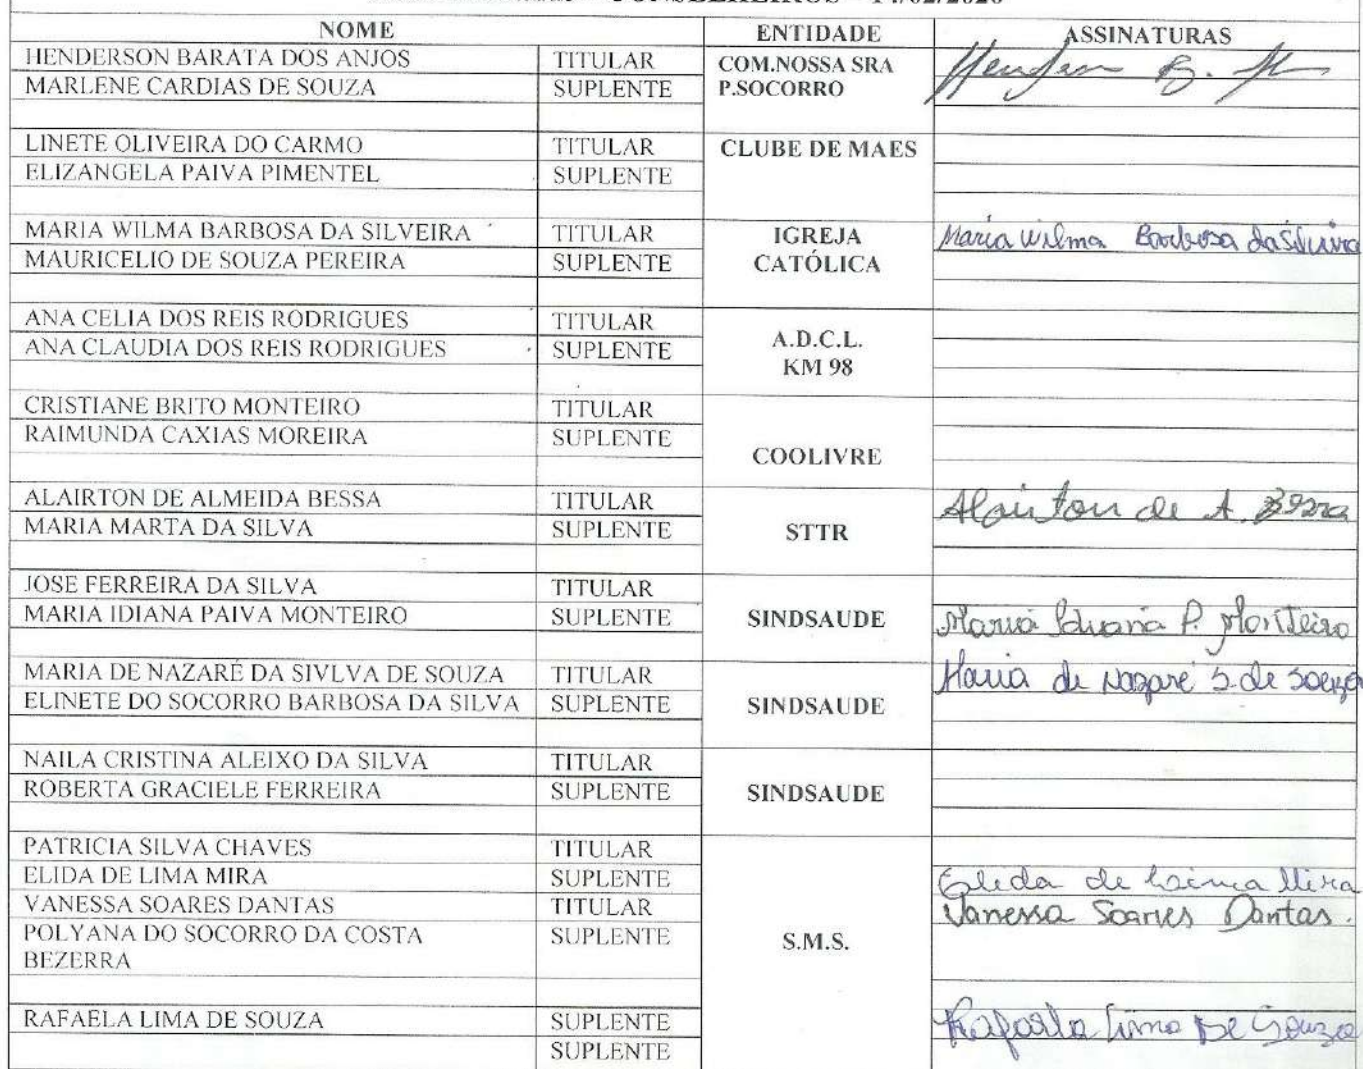 14/02/2020
NOME ENTIDADE ASSINATURAS
HENDERSON BARATA DOS ANJOS TITULAR COM.NOSSA SRA
MARLENE CARDIAS DE SOUZA SUPLENTE P.SOCORRO
LINETE OLIVEIRA DO CARMO TITULAR CLUBE DE MAES
ELIZANGELA PAIVA PIMENTEL SUPLENTE
MARIA WILMA BARBOSA DA SILVEIRA TITULAR IGREJA Maria Wilma Barbosa da Silveira
MAURICELIO DE SOUZA PEREIRA SUPLENTE CATÓLICA
ANA CELIA DOS REIS RODRIGUES TITULAR A.D.C.L.
ANA CLAUDIA DOS REIS RODRIGUES SUPLENTE KM 98
CRISTIANE BRITO MONTEIRO TITULAR
RAIMUNDA CAXIAS MOREIRA SUPLENTE
COOLIVRE
ALAIRTON DE ALMEIDA BESSA TITULAR Alairton de A. Bessa
MARIA MARTA DA SILVA SUPLENTE STTR
JOSE FERREIRA DA SILVA TITULAR
MARIA IDIANA PAIVA MONTEIRO SUPLENTE SINDSAUDE Maria Idiana P. Monteiro
MARIA DE NAZARÉ DA SIVLVA DE SOUZA TITULAR Maria de Nazaré S. de Souza
ELINETE DO SOCORRO BARBOSA DA SILVA SUPLENTE SINDSAUDE
NAILA CRISTINA ALEIXO DA SILVA TITULAR
ROBERTA GRACIELE FERREIRA SUPLENTE SINDSAUDE
PATRICIA SILVA CHAVES TITULAR
ELIDA DE LIMA MIRA SUPLENTE Elida de Lima Mira
VANESSA SOARES DANTAS TITULAR Vanessa Soares Dantas.
POLYANA DO SOCORRO DA COSTA SUPLENTE S.M.S.
BEZERRA
RAFAELA LIMA DE SOUZA SUPLENTE Rafaela Lima De Souza
SUPLENTE